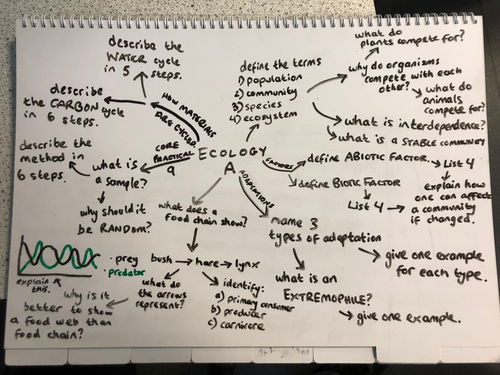 describe the
WATER cycle
in 5 steps.
describe
the CARBON cycle
in 6 steps.
HOW MATERIALS
ARE CYCLED
describe the
method in
6 steps.
CORE
PRACTICAL
9
what is
a sample?
why should it
be RANDOM?
ECOLOGY
A
define the terms
1) population
2) community
3) species
4) ecosystem
what do
plants compete for?
why do organisms
compete with each
other?
what do
animals
compete for?
what is interdependence?
what is a STABLE community
FACTORS
define ABIOTIC FACTOR
List 4
explain how
one can affect
a community
if changed.
define BIOTIC FACTOR
List 4
ADAPTATIONS
name 3
types of adaptation
give one example
for each type.
what is an
EXTREMOPHILE?
give one example.
what does a
food chain show?
bush → hare → lynx
what do
the arrows
represent?
identify:
a) primary consumer
b) producer
c) carnivore
prey
predator
explain
this.
why is it
better to show
a food web than
food chain?